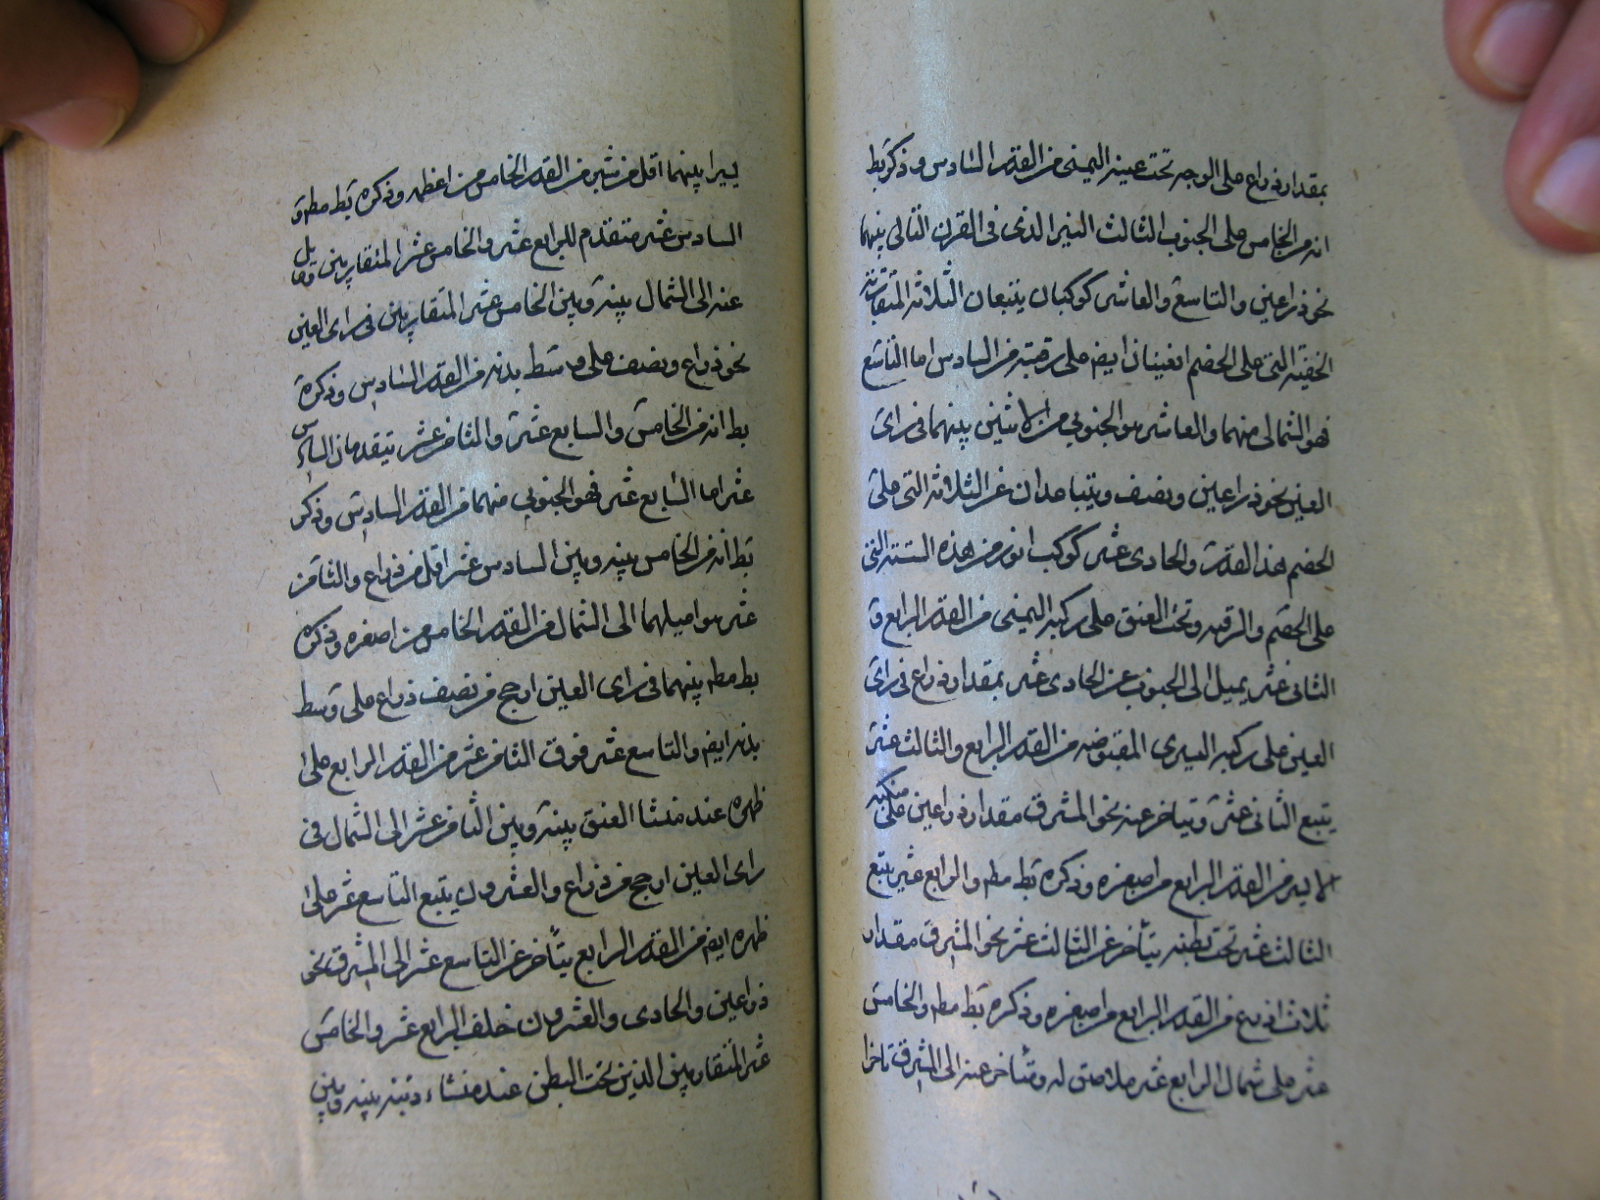 بمقدار ذراع على الوجه تحت عينه اليمنى من القدر السادس وذكر بط
انه من الخامس على الجنوب الثالث النير الذى فى القرن التالى بينهما
نحو ذراعين والتاسع والعاشر كوكبان يتبعان الثلاثة المتقاربة
الخفية التى على الخطم اغنيان ايضا على رقبته من السادس اما التاسع
فهو الشمالى منهما والعاشر هو الجنوبى من الاثنين بينهما فى راى
العين نحو ذراعين ونصف ويتباعدان عن الثلاثة التى على
الخطم هذا القدر والحادى عشر كوكب انور من هذه الستة التى
على الخطم والرقبة وتحت العنق على ركبته اليمنى من القدر الرابع و
الثانى عشر يميل الى الجنوب عن الحادى عشر بمقدار ذراع فى راى
العين على ركبته اليسرى المقبوضه من القدر الرابع والثالث عشر
يتبع الثانى عشر ويتاخر عنه نحو المشرق مقدار ذراعين على منكبه
الايسر من القدر الرابع من اصغره وذكره بط مطم والرابع عشر يتبع
الثالث عشر تحت بطنه يتأخر عن الثالث عشر نحو المشرق مقدار
ثلاث اذرع من القدر الرابع من اصغره وذكره بط مطم والخامس
عشر على شمال الرابع عشر ملاصق له ويتأخر عنه الى المشرق تاخرا
يسيرا بينهما اقل من شبر من القدر الخامس من اعظمه وذكره بط مطم و
السادس عشر متقدم للرابع عشر والخامس عشر المتقاربين ومايل
عنه الى الشمال بينه وبين الخامس عشر المتقاربين فى راى العين
نحو ذراع ونصف على وسط بدنه من القدر السادس وذكره
بط انه من الخامس والسابع عشر والثامن عشر يتقدمان السادس
عشر اما السابع عشر فهو الجنوبى منهما من القدر السادس وذكر
بط انه من الخامس بينه وبين السادس عشر اقل من ذراع والثامن
عشر هو اميلهما الى الشمال من القدر الخامس من اصغره وذكره
بط مطم بينهما فى راى العين ارجح من نصف ذراع على وسط
بدنه ايضا والتاسع عشر فوق الثامن عشر من القدر الرابع على
ظهره عند منشا العنق بينه وبين الثامن عشر الى الشمال فى
راى العين ارجح من ذراع والعشرون يتبع التاسع عشر على
ظهره ايضا من القدر الرابع يتأخر عن التاسع عشر الى المشرق نحو
ذراعين والحادى والعشرون خلف الرابع عشر والخامس
عشر المتقاربين الذين تحت البطن عند منشاء ذنبه بينه وبين